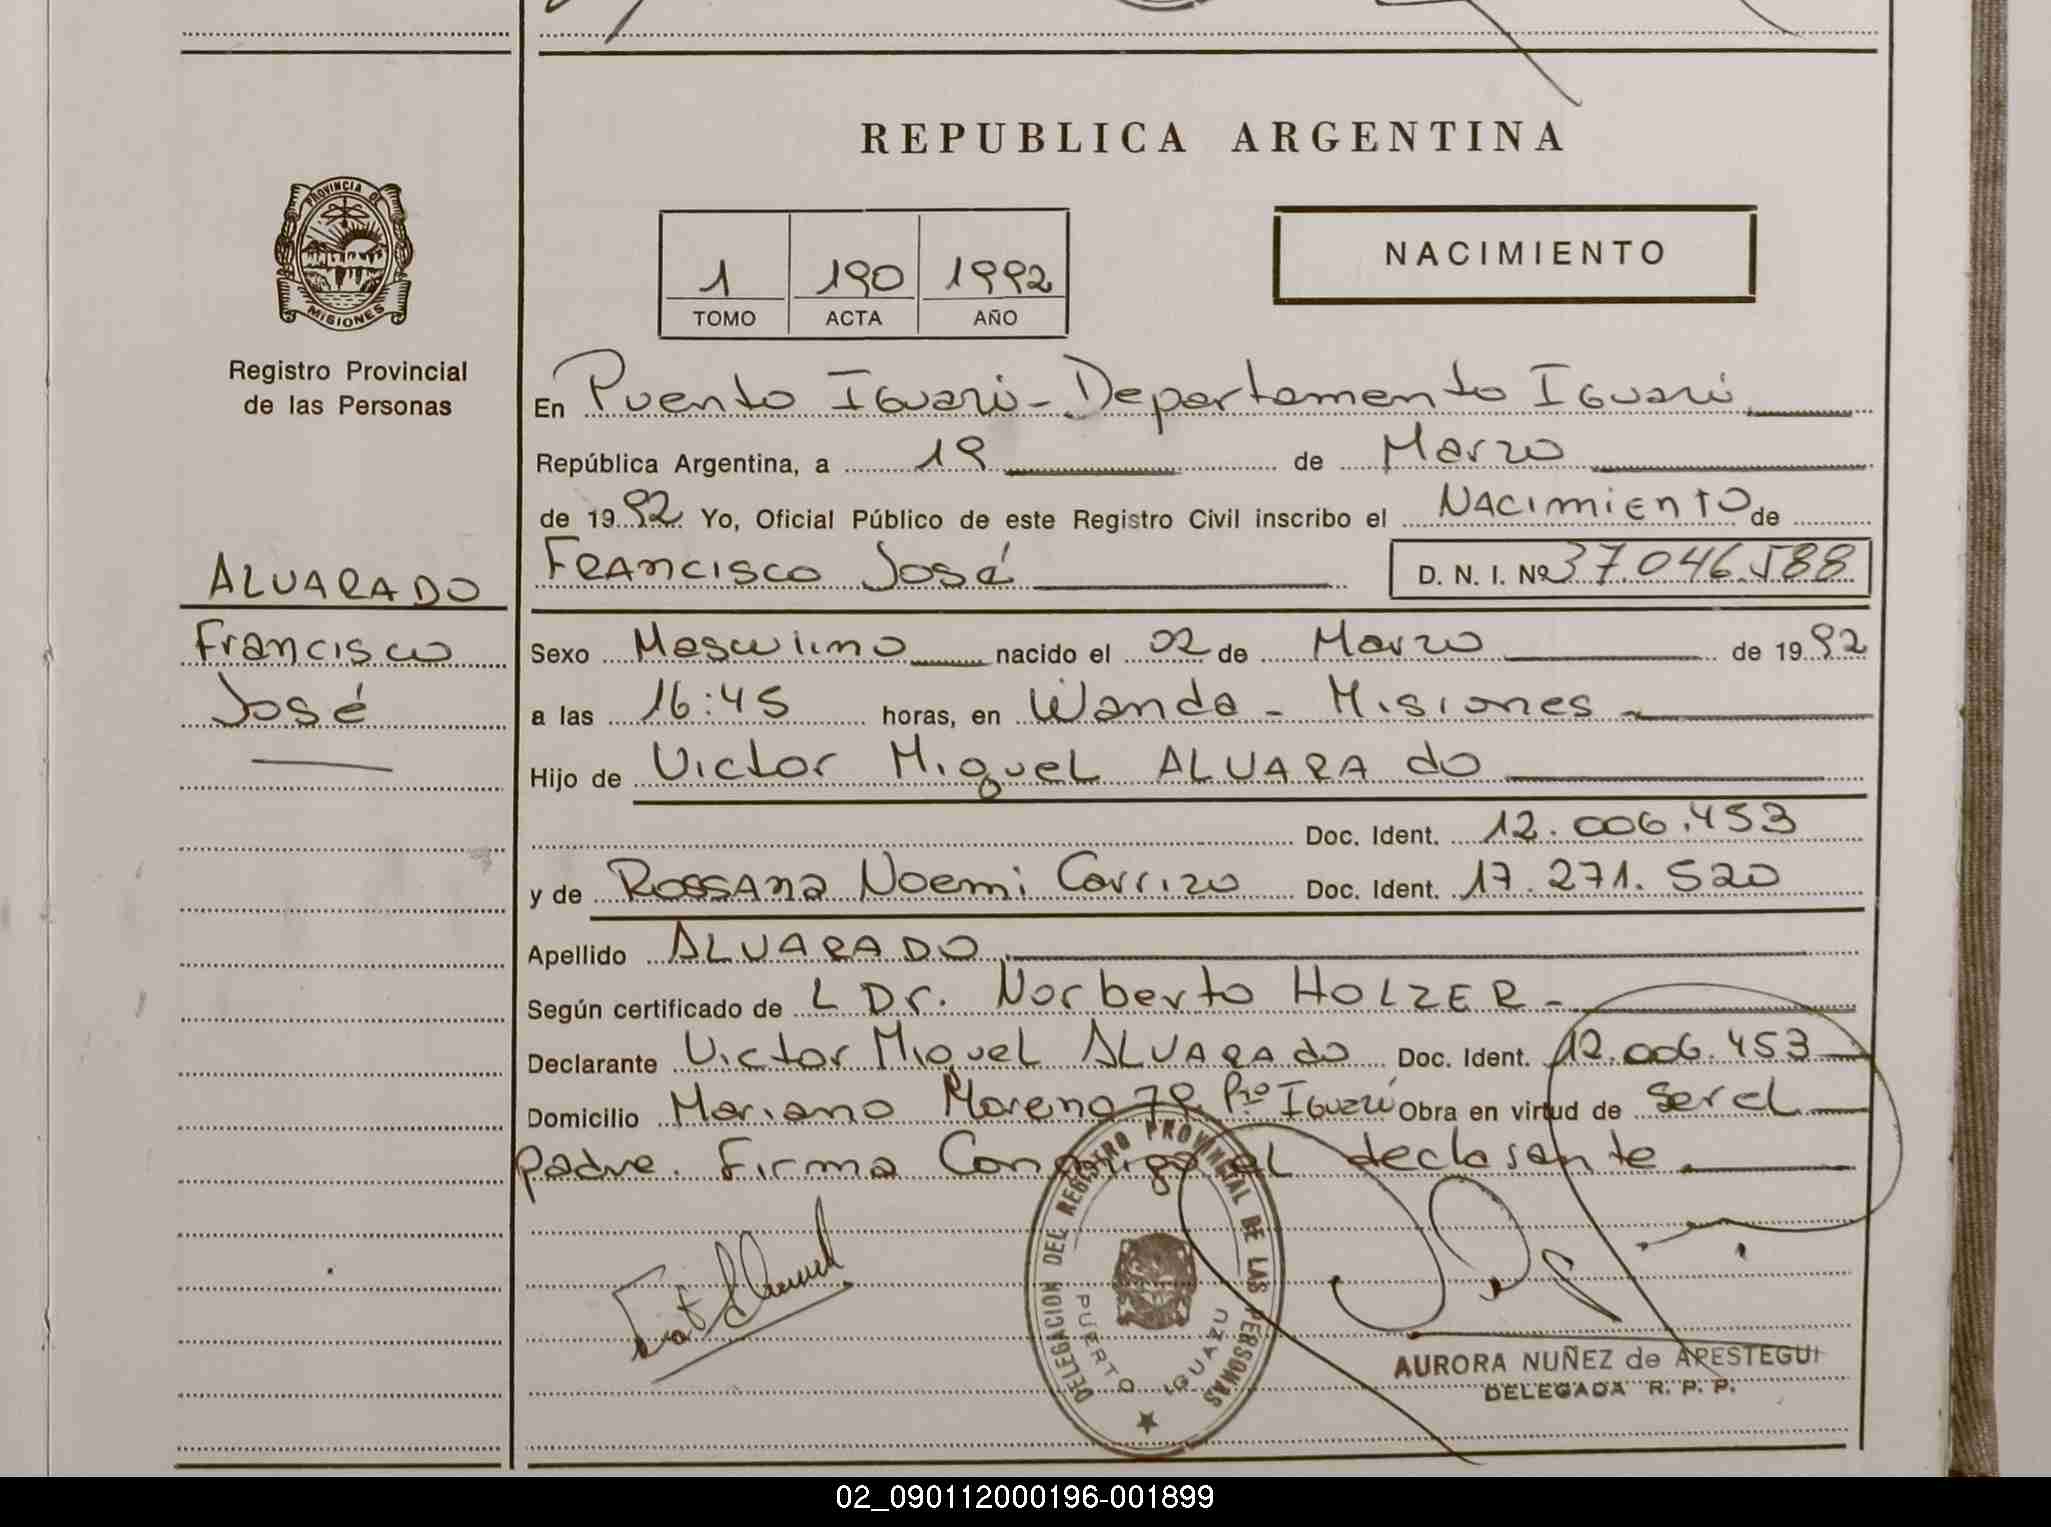 REPUBLICA ARGENTINA
PROVINCIA DE
MISIONES
Registro Provincial
de las Personas
1 190 1992
TOMO ACTA AÑO
NACIMIENTO
En Puerto Iguazú - Departamento Iguazú
República Argentina, a 19 de Marzo
de 1992 Yo, Oficial Público de este Registro Civil inscribo el NACIMIENTO de
Francisco José D. N. I. Nº 37.046.588
ALVARADO
Francisco
José
Sexo Masculino nacido el 02 de Marzo de 1992
a las 16:45 horas, en Wanda - Misiones
Hijo de Victor Miguel ALVARADO
Doc. Ident. 12.006.453
y de Rossana Noemi Carrizo Doc. Ident. 17.271.520
Apellido ALVARADO
Según certificado de L Dr. Norberto HOLZER -
Declarante Victor Miguel ALVARADO Doc. Ident. 12.006.453
Domicilio Mariano Moreno 79 Pto Iguazú Obra en virtud de ser el
padre. Firma Conmigo el declarante
DELEGACION DEL REGISTRO PROVINCIAL DE LAS PERSONAS
PUERTO IGUAZU
AURORA NUÑEZ de APESTEGUI
DELEGADA R. P. P.
02_090112000196-001899